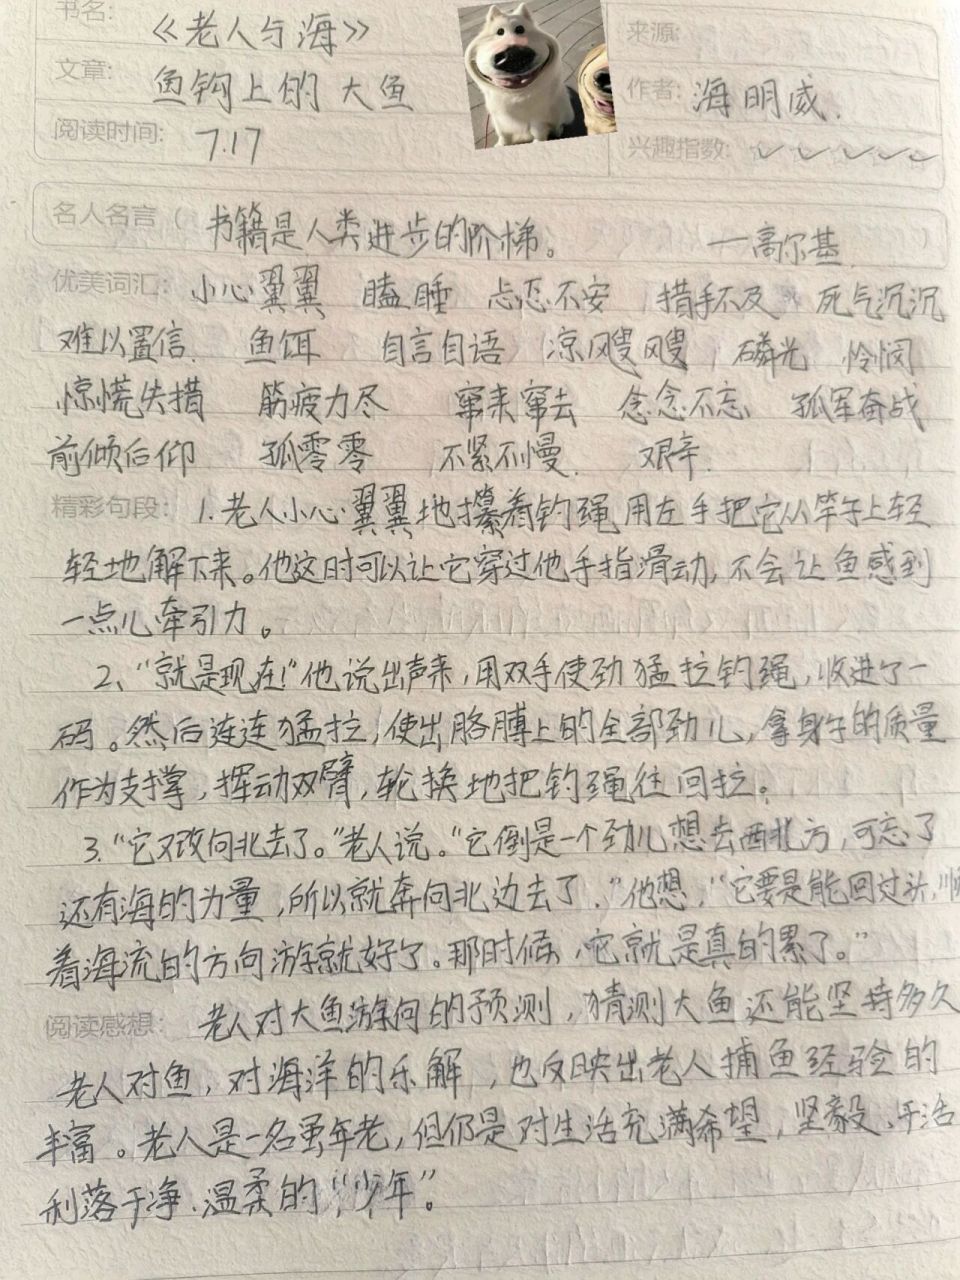 书名: 《老人与海》
来源:
文章: 鱼钩上的大鱼
作者: 海明威.
阅读时间: 7.17
兴趣指数: ✓✓✓✓✓
名人名言( 书籍是人类进步的阶梯。 —高尔基
优美词汇: 小心翼翼 瞌睡 忐忑不安 措手不及 死气沉沉
难以置信. 鱼饵 自言自语 凉飕飕 磷光 怜悯
惊慌失措 筋疲力尽 窜来窜去 念念不忘 孤军奋战
前倾后仰 孤零零 不紧不慢. 艰辛.
精彩句段: 1.老人小心翼翼地攥着钓绳,用左手把它从竿子上轻
轻地解下来。他这时可以让它穿过他手指滑动,不会让鱼感到
一点儿牵引力。
2、"就是现在!"他说出声来,用双手使劲猛拉钓绳,收进了一
码。然后连连猛拉,使出胳膊上的全部劲儿,拿身子的质量
作为支撑,挥动双臂,轮换地把钓绳往回拉。
3."它又改向北去了。"老人说。"它倒是一个劲儿想去西北方,可忘了
还有海的力量,所以就奔向北边去了."他想,"它要是能回过头,顺
着海流的方向游就好了。那时候,它就是真的累了。"
阅读感想: 老人对大鱼游向的预测,猜测大鱼还能坚持多久
老人对鱼,对海洋的了解,也反映出老人捕鱼经验的
丰富。老人是一名虽年老,但仍是对生活充满希望,坚毅、干活
利落干净、温柔的"少年"。